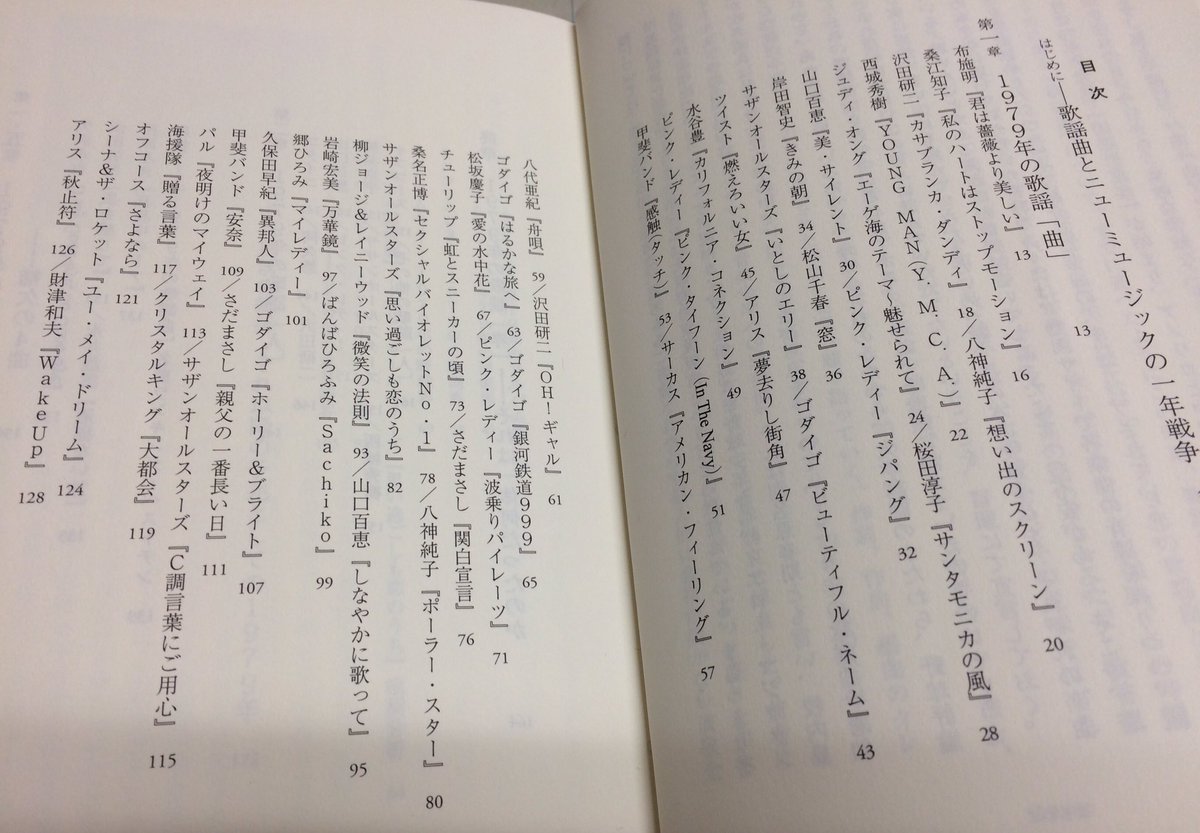 目次
はじめに―歌謡曲とニューミュージックの一年戦争
第一章 1979年の歌謡「曲」 13
布施明『君は薔薇より美しい』 13
桑江知子『私のハートはストップモーション』 16
沢田研二『カサブランカ・ダンディ』 18/八神純子『想い出のスクリーン』 20
西城秀樹『YOUNG MAN(Y.M.C.A.)』 22
ジュディ・オング『エーゲ海のテーマ〜魅せられて』 24/桜田淳子『サンタモニカの風』 28
山口百恵『美・サイレント』 30/ピンク・レディー『ジパング』 32
岸田智史『きみの朝』 34/松山千春『窓』 36
サザンオールスターズ『いとしのエリー』 38/ゴダイゴ『ビューティフル・ネーム』 43
ツイスト『燃えろいい女』 45/アリス『夢去りし街角』 47
水谷豊『カリフォルニア・コネクション』 49
ピンク・レディー『ピンク・タイフーン(In The Navy)』 51
甲斐バンド『感触(タッチ)』 53/サーカス『アメリカン・フィーリング』 57
八代亜紀『舟唄』 59/沢田研二『OH!ギャル』 61
ゴダイゴ『はるかな旅へ』 63/ゴダイゴ『銀河鉄道999』 65
松坂慶子『愛の水中花』 67/ピンク・レディー『波乗りパイレーツ』 71
チューリップ『虹とスニーカーの頃』 73/さだまさし『関白宣言』 76
桑名正博『セクシャルバイオレットNo.1』 78/八神純子『ポーラー・スター』 80
サザンオールスターズ『思い過ごしも恋のうち』 82
柳ジョージ&レイニーウッド『微笑の法則』 93/山口百恵『しなやかに歌って』 95
岩崎宏美『万華鏡』 97/ばんばひろふみ『Sachiko』 99
郷ひろみ『マイレディー』 101
久保田早紀『異邦人』 103/ゴダイゴ『ホーリー&ブライト』 107
甲斐バンド『安奈』 109/さだまさし『親父の一番長い日』 111
パル『夜明けのマイウェイ』 113/サザンオールスターズ『C調言葉にご用心』 115
海援隊『贈る言葉』 117/クリスタルキング『大都会』 119
オフコース『さよなら』 121
シーナ&ザ・ロケット『ユー・メイ・ドリーム』 124
アリス『秋止符』 126/財津和夫『WakeUp』 128